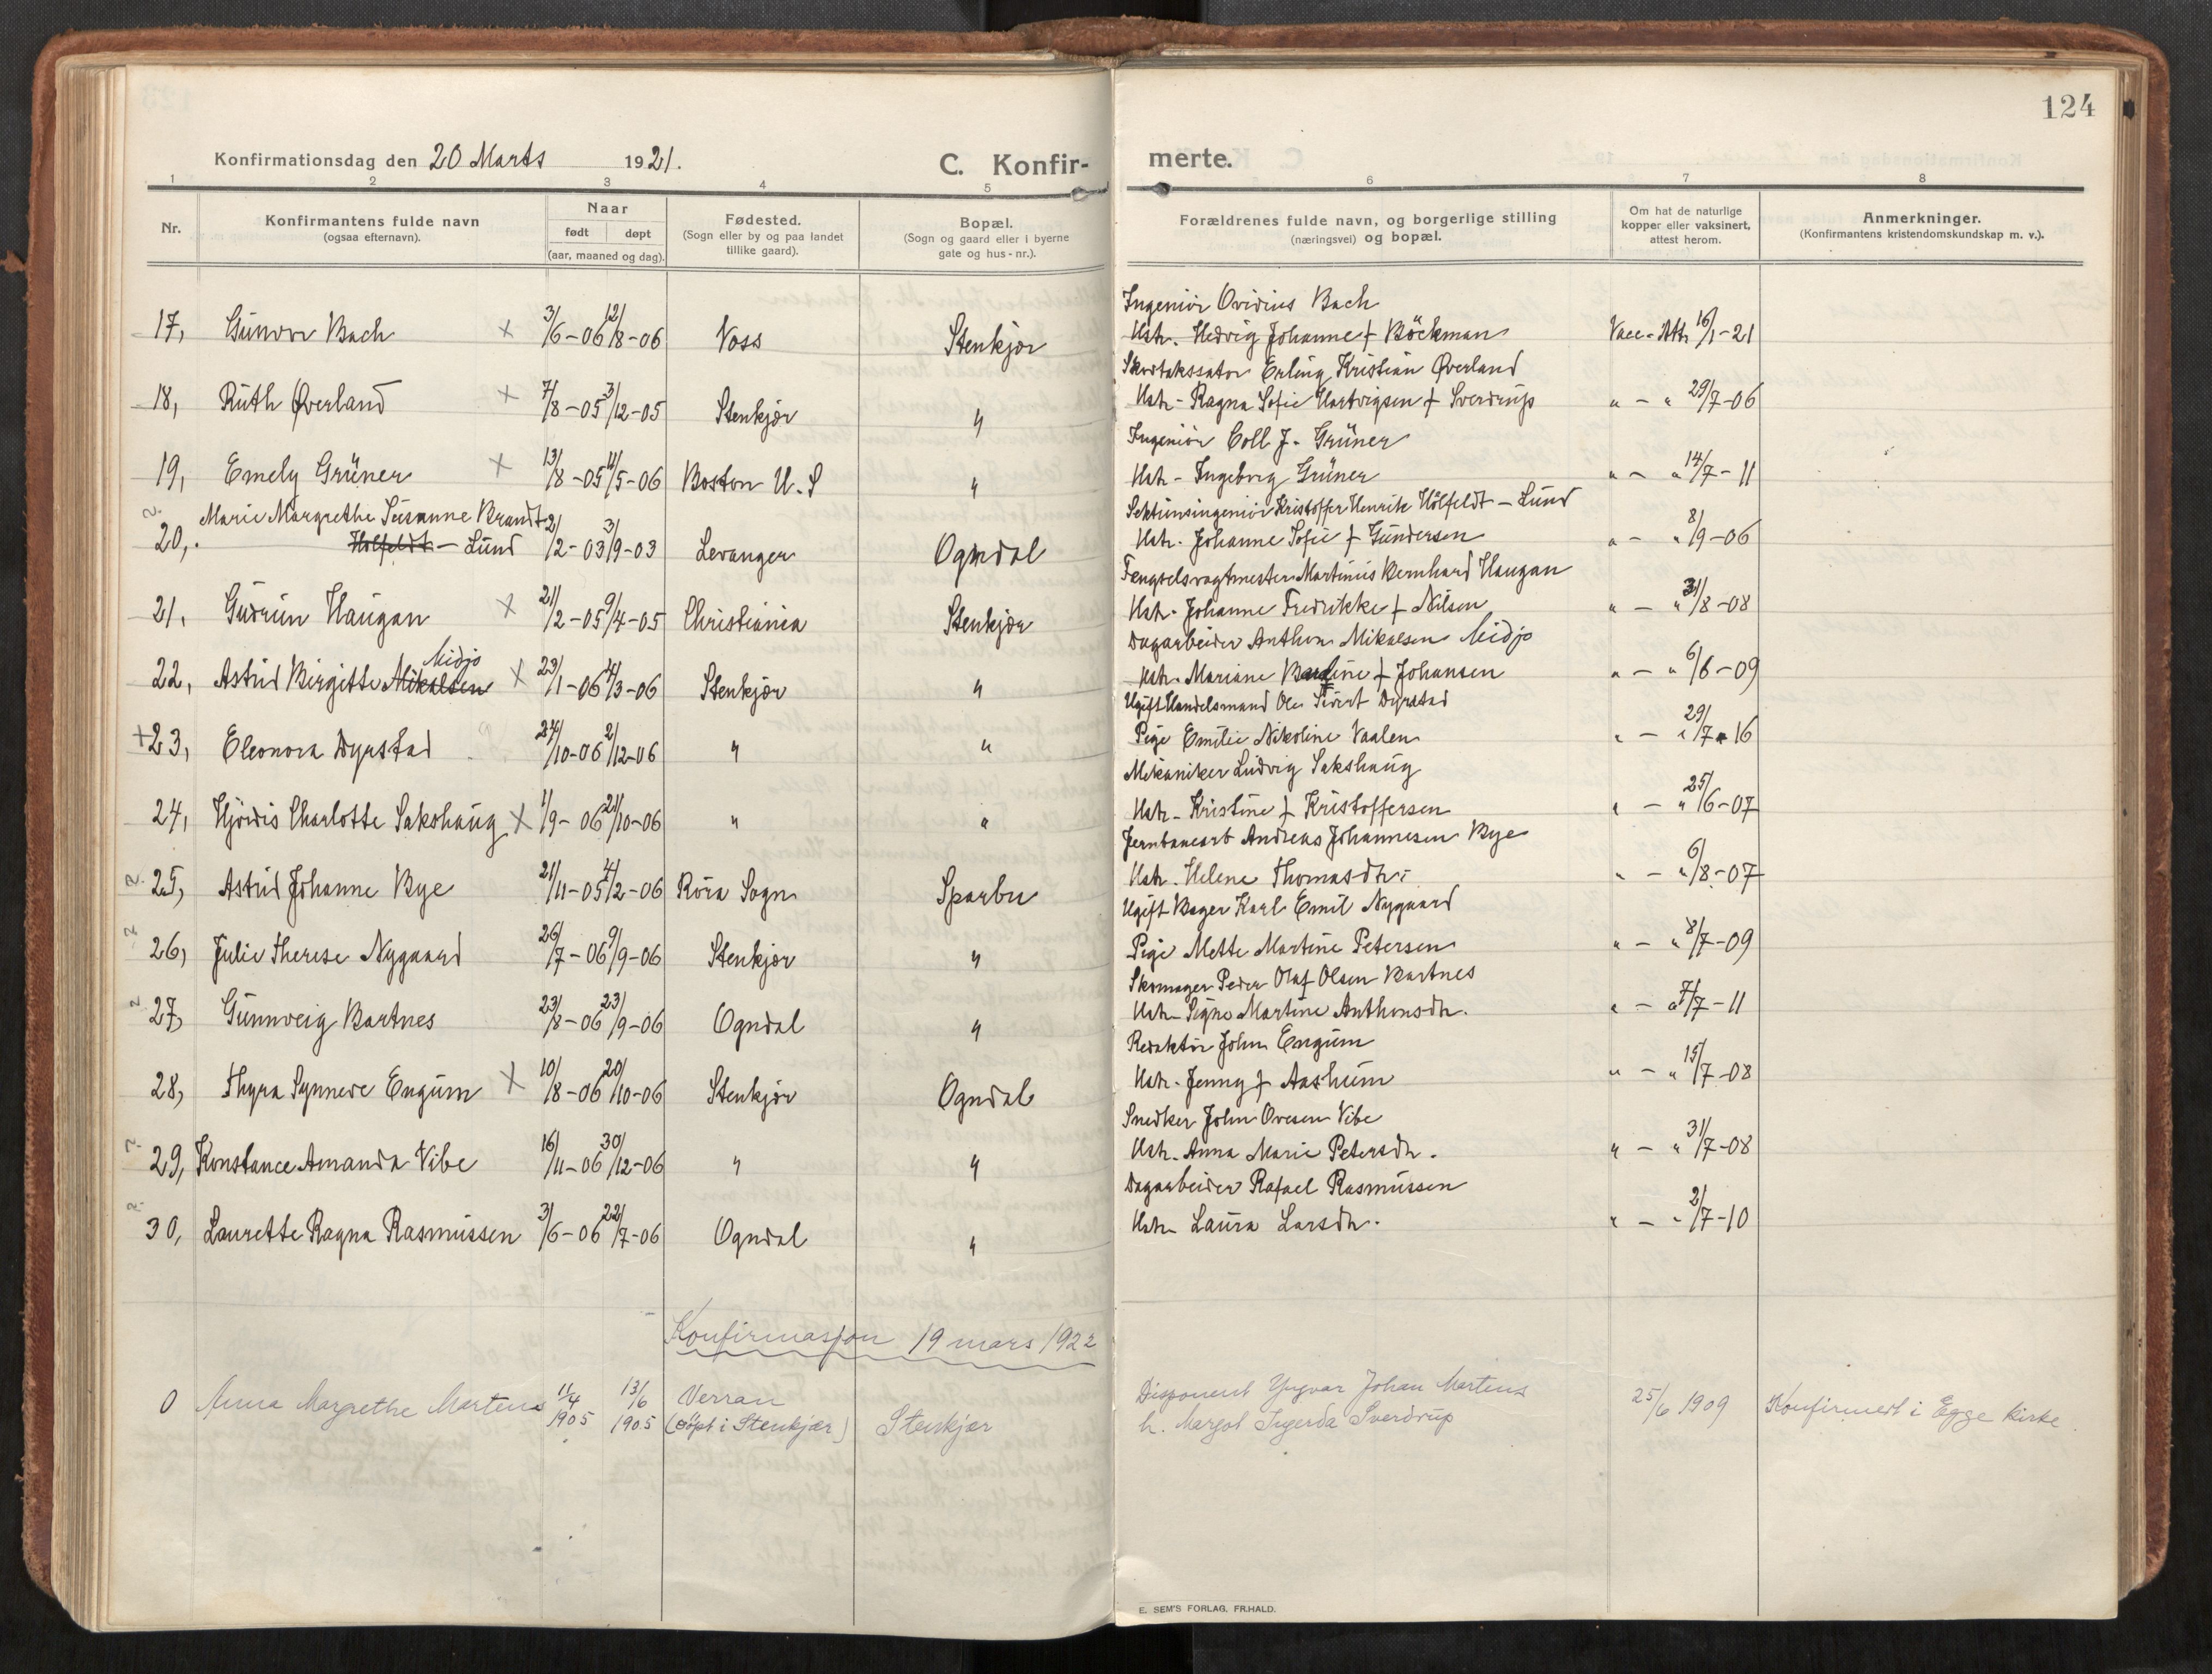 124
Konfirmationsdag den 20 Marts 1921.
C. Konfirmerte.
1 2 3 4 5 6 7 8
Nr.
Konfirmantens fulde navn
(ogsaa efternavn).
Naar
født døpt
(aar, maaned og dag).
Fødested.
(Sogn eller by og paa landet
tillike gaard).
Bopæl.
(Sogn og gaard eller i byerne
gate og hus-nr.).
Forældrenes fulde navn, og borgerlige stilling
(næringsvei) og bopæl.
Om hat de naturlige
kopper eller vaksinert,
attest herom.
Anmerkninger.
(Konfirmantens kristendomskundskap m. v.).
Ingeniör Ovidius Bach
17, Gunvor Bach × 3/6-06 12/8-06 Voss Stenkjør Hstr. Hedvig Johanne f Böckman Vacc-Att. 16/1-21
Skovtakssator Erling Kristian Øverland
18, Ruth Øverland × 7/8-05 3/12-05 Stenkjør " Hstr- Ragna Sofie Hartvigsen f Sverdrup " - " 29/7-06
Ingeniör Coll J. Grüner
19, Emely Grüner × 13/8-05 11/5-06 Boston U.S " Hstr- Ingeborg Grüner " - " 14/7-11
Marie Margrethe Susanne Brandt Sektionsingeniör Kristoffer Henrik Hölfeldt - Lund
20, Holfeldt - Lund 2/2-03 3/9-03 Levanger Ogndal Hstr. Johanne Sofie f Gundersen " - " 8/9-06
Fengselsvagtmester Martinus Bernhard Haugan
21, Gudrun Haugan × 21/2-05 9/4-05 Christiania Stenkjør Hstr. Johanne Fredrikke f Nilsen " - " 31/8-08
Midjo Dagarbeider Anthon Mikalsen Midjo
22, Astrid Birgitte Mikalsen × 23/1-06 4/3-06 Stenkjør " Hstr. Mariane Bardine f Johansen " - " 6/6-09
Ugift Handelsmand Ole Sivert Dyrstad
+23, Eleonora Dyrstad 24/10-06 2/12-06 " " Pige Emilie Nikoline Vaalen " - " 29/7-16
Mekaniker Ludvig Sakshaug
24, Hjördis Charlotte Sakshaug × 1/9-06 21/10-06 " " Hstr- Kristine f Kristoffersen " - " 25/6-07
Jernbanearb Andreas Johannesen Bye
25, Astrid Johanne Bye 21/11-05 4/2-06 Röra Sogn Sparbu Hstr. Helene Thomasdtr. " - " 6/8-07
Ugift Bager Karl Emil Nygaard
26, Julie Therese Nygaard 26/7-06 9/9-06 Stenkjør " Pige Mette Martine Petersen " - " 8/7-09
Skomager Peder Olaf Olsen Bartnes
27, Gunnveig Bartnes 23/8-06 23/9-06 Ogndal " Hstr- Signe Martine Anthonsdtr. " - " 7/7-11
Redaktör John Engum
28, Thyra Synneve Engum × 10/8-06 20/10-06 Stenkjør Ogndal Hstr. Jenny f Aashum " - " 15/7-08
Snedker John Ovesen Vibe
29, Konstance Amanda Vibe 16/11-06 30/12-06 " " Hstr. Anna Marie Petersdtr. " - " 31/7-08
Dagarbeider Rafael Rasmussen
30, Laurette Ragna Rasmussen 3/6-06 22/7-06 Ogndal " Hstr- Laura Larsdtr. " - " 2/7-10
Konfirmasjon 19 mars 1922
0 Anna Margrethe Martens 11/4 1905 13/6 1905 Verran
(döpt i Stenkjær) Stenkjær
Disponent Yngvar Johan Martens
h. Margot Ingerda Sverdrup
25/6 1909 Konfirmert i Egge kirke
E. SEM'S FORLAG, FR.HALD.